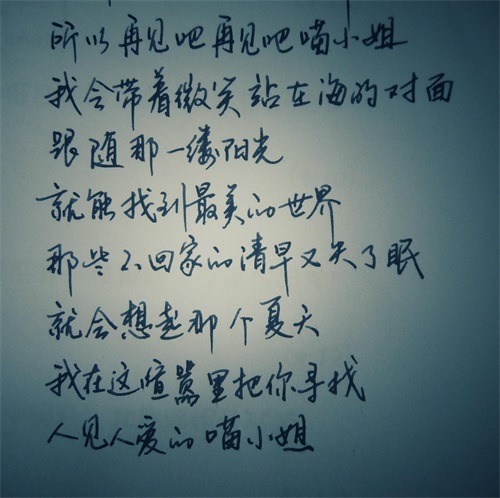 所以再见吧再见吧喵小姐
我会带着微笑站在海的对面
跟随那一缕阳光
就能找到最美的世界
那些不回家的清早又失了眠
就会想起那个夏天
我在这喧嚣里把你寻找
人见人爱的喵小姐